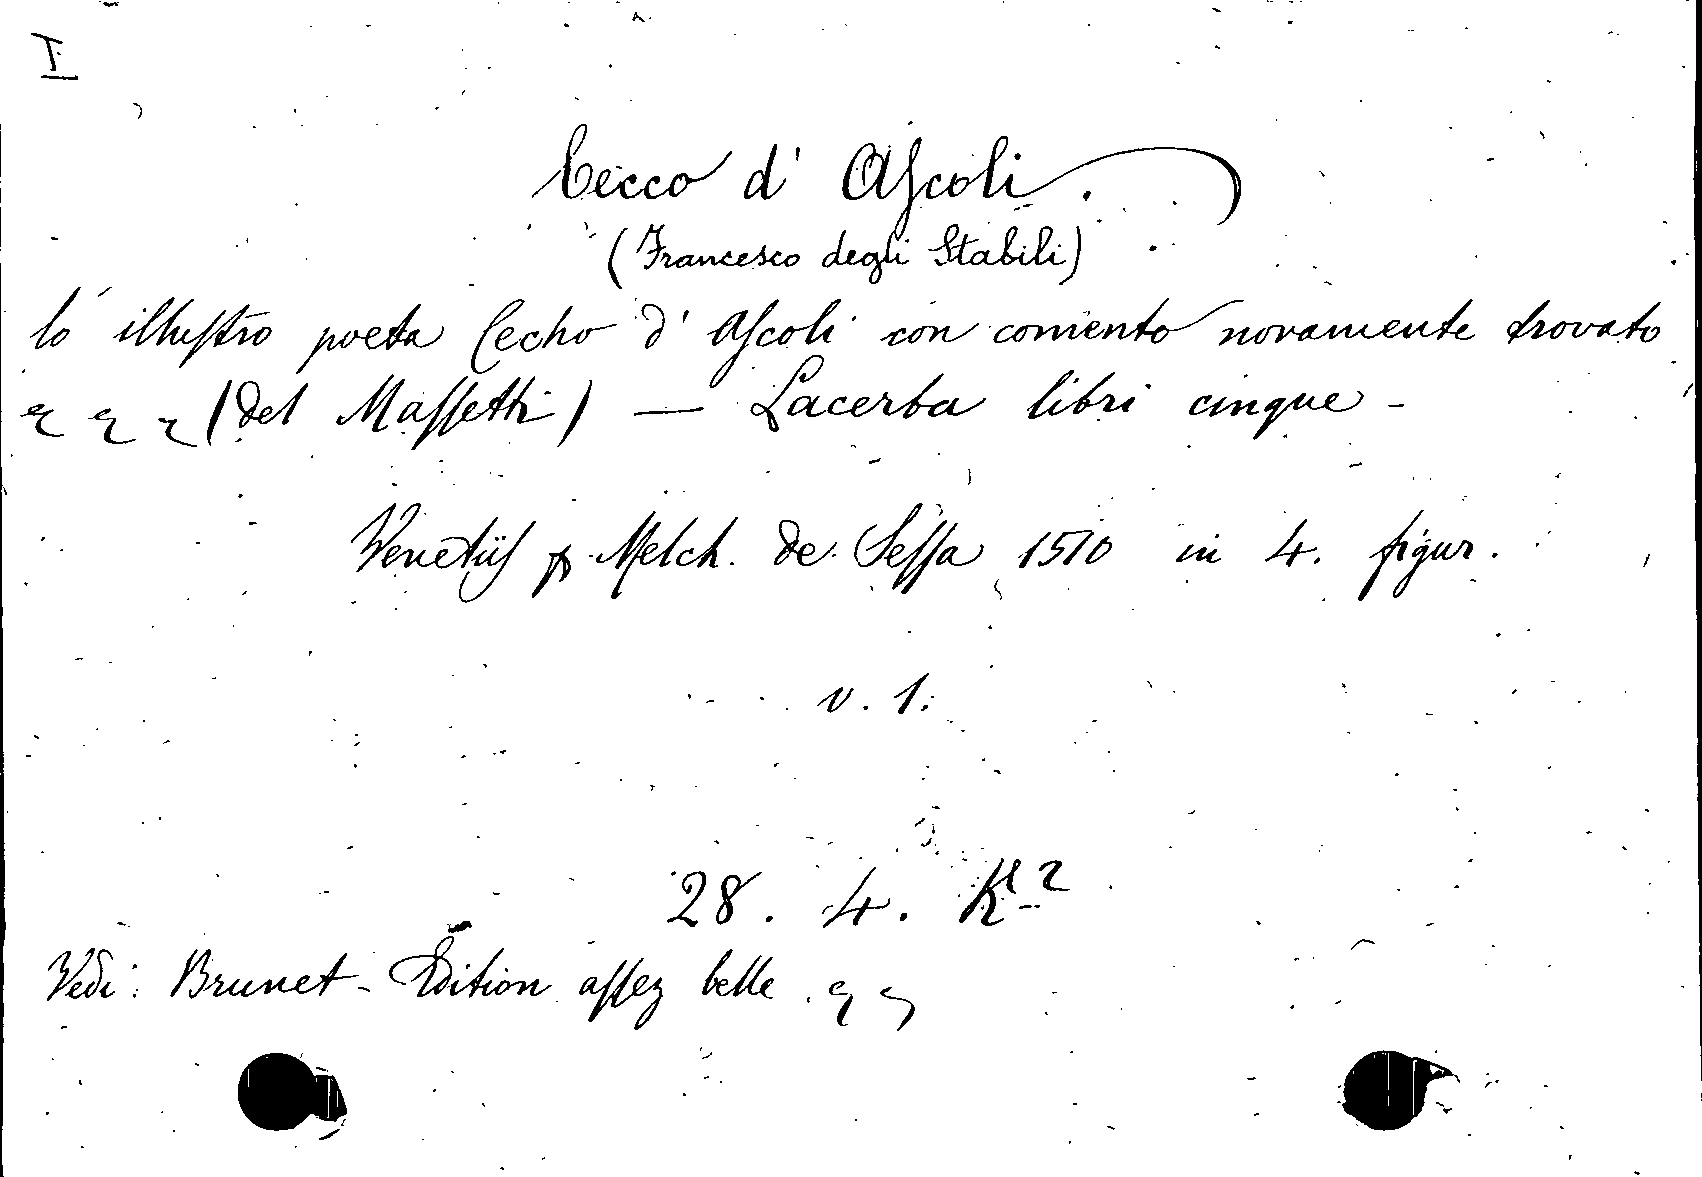 I
Cecco d' Ascoli.
(Francesco degli Stabili)
lo illustro poeta Cecho d' Ascoli con comento novamente trovato
(del Massetti) — Lacerba libri cinque -
Venetiis p Melch. de Sessa 1510 in 4. figur.
v. 1.
28. 4. K 2
Vedi: Brunet - Edition assez belle